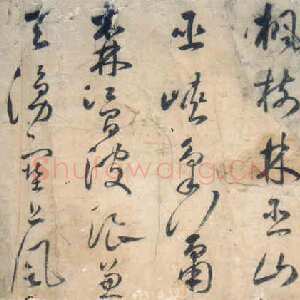 楓樹林巫山
巫峽氣蕭
森江間波浪兼
天湧塞上風
Shufawang.CN